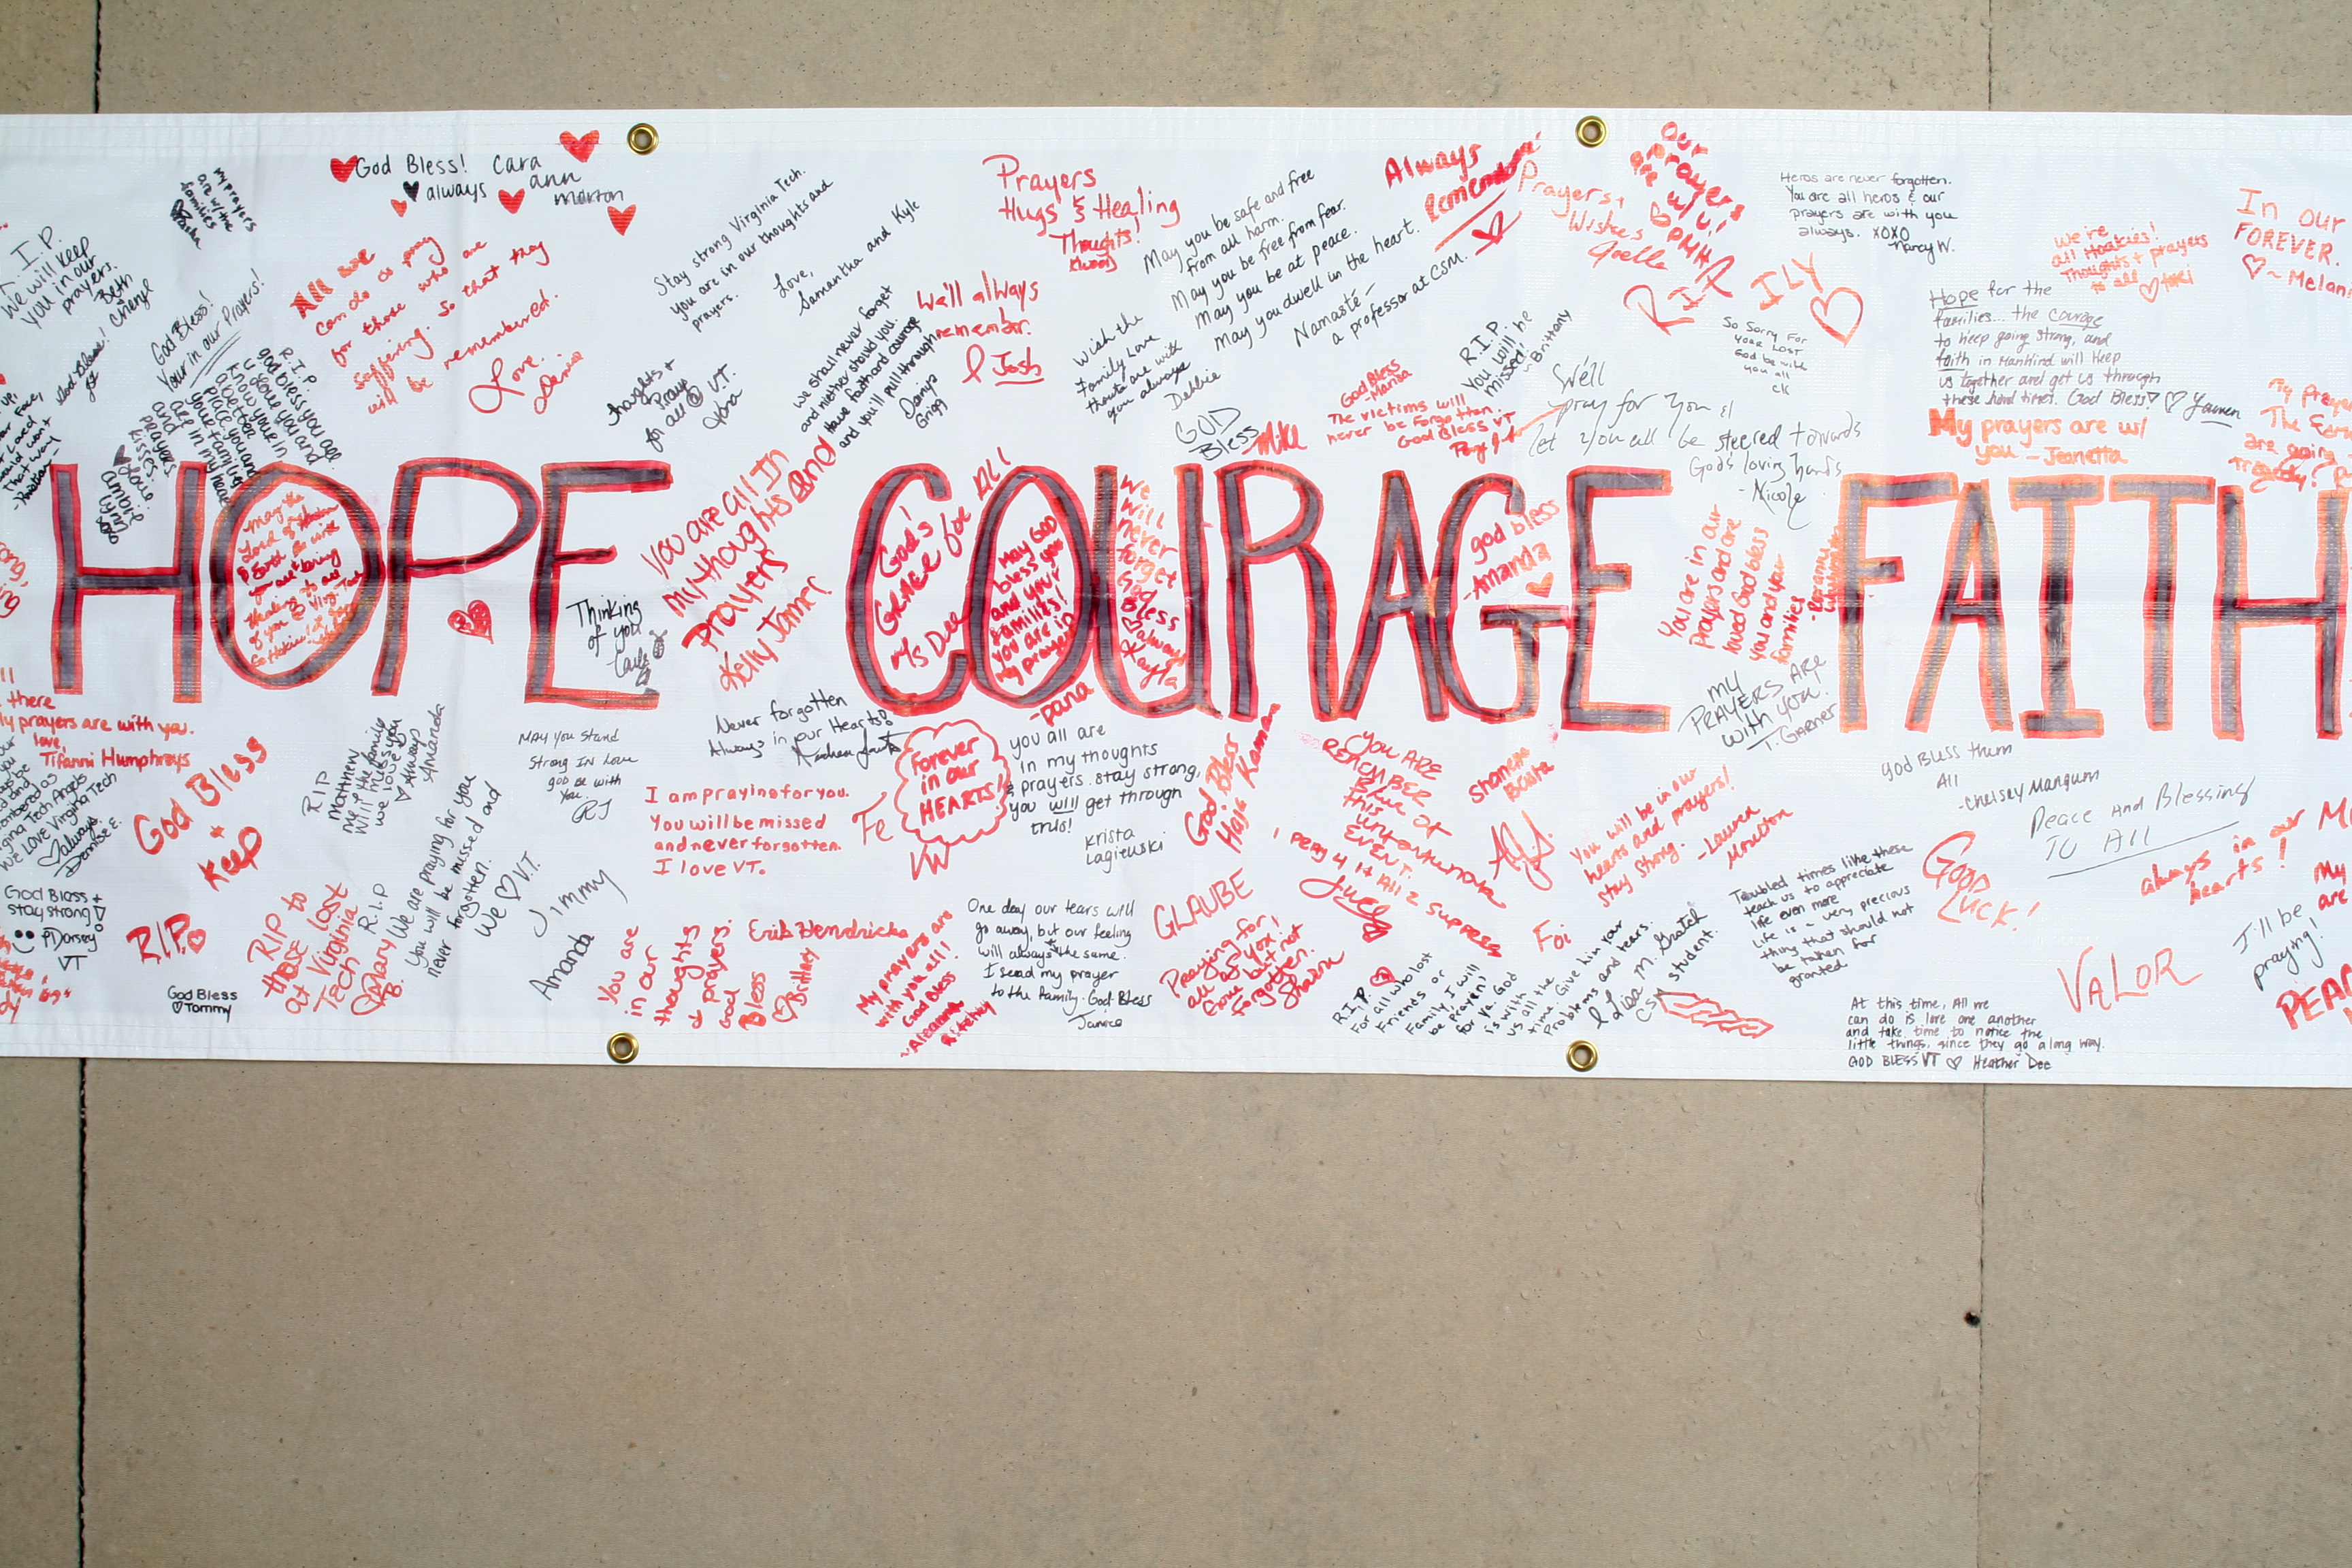 God Bless! Cara
always ann
morton
My prayers
are w/ the
families
I.P.
We will keep
you in our
prayers.
Beth
Cheryl
God Bless!
Your in our Prayers!
All we
can do is pray
for those who are
suffering. So that they
will be remembered.
Love,
R.I.P.
god bless you all.
U gave you and
Know your in
a better
place. you and
your family
are in my
and
prayers
Kisses.
Love
ambre
Lynn
xoxo
Stay strong Virginia Tech.
You are in our thoughts and
prayers.
Love,
Samantha and Kyle
Thoughts +
Prayers
for all @ VT.
we shall never forget
and niether should you.
Have faith and courage
and you'll pull through
Danija
Grigg
Prayers
Hugs & Healing
Thoughts!
We'll always
remember.
Josh
Wish the
Family Love
thouts are with
you always
Debbie
May you be safe and free
from all harm.
May you be free from fear.
May you be at peace.
May you dwell in the heart.
Namasté –
a professor at CSM.
GOD
Bless
Mike
Always
Remembered
Prayers +
Wishes
Joelle
Our
prayers
are
w/ u!
RIP
ILY
God Bless
The victims will
never be Forgotten.
God Bless VT
R.I.P.
You will be
missed!
~Brittany
So Sorry For
your Lost
God be with
you all
CK
We'll
pray for you &
let you all be steered towards
God's loving hands
- Nicole
Heros are never forgotten.
You are all heros & our
prayers are with you
always. XOXO
Nancy W.
we're
all Hookies!
Thoughts + prayers
to all
Hope for the
families... the courage
to keep going strong, and
faith in Mankind will keep
us together and get us through
these hard times. God Bless!
My prayers are w/
you - Jeanetta
In our
FOREVER.
~ Melani
My prayer
are going
HOPE COURAGE FAITH
May the
Lord of
Thinking
of you
You are all In
My thoughts and
Prayers
Kelly Jenner
God's
GRACE for ALL
Ms Dee
May GOD
bless you
and your
families!
you are in
my prayers
-pana
We
will
never
forget
God
Bless
always
Kayla
god bless
-Amanda
You are in our
Prayers and are
loved God bless
you and your
families
MY
PRAYERS ARE
WITH YOU.
T. GARNER
there
prayers are with you.
love,
Tifanni Humphreys
God Bless
+
Keep
we LOVE Virginia Tech
always.
Dennise E.
God Bless +
stay strong
PDorsey
VT
R.I.P.
God Bless
Tommy
RIP
Matthew
will miss you
we love you
Always
Amanda
RIP to
those lost
at Virginia
Tech
R.I.P
Mary
B.
We are praying for you
you will be missed and
never forgotten.
We V.T.
Jimmy
Amanda
MAY you Stand
Strong IN Love
god BE with
You.
RJ
Never forgotten
Always in our Hearts!
I am praying for you.
You will be missed
and never forgotten.
I love VT.
Fe
Forever
in our
HEARTS!
VW
you all are
in my thoughts
& prayers. stay strong,
you will get through
this!
Krista
Lagieuski
God Bless
Haja Kamara
YOU ARE
REMEMBER
this
EVENT.
Lucy
Shameka
Busta
You will be in our
hearts and prayers!
stay strong.
-Lauren
Moulton
god BLESS them
All
-Chelsey Mangum
Peace And Blessings
TO All
GOOD
LUCK!
always in our
hearts!
You are
in our
thoughts
& prayers.
God
Bless
Brittney
Erik Hendricks
My prayers are
with you all!
God Bless
One day our tears will
go away, but our feeling
will always the same.
I send my prayer
to the family. God Bless
Janice
GLAUBE
Praying for
all of you!
Gone but not
forgotten.
Shawna
Foi
R.I.P.
For all who lost
Friends or
Family, I will
be prayen
for ya. God
is with
us all the
time. Give him your
Problems and tears.
Lisa M. Gratch
CSM student.
Troubled times like these
teach us to appreciate
life even more
Life is a very precious
thing that should not
be taken for
granted.
VALOR
I'll be
praying!
At this time, All we
can do is love one another
and take time to notice the
little things, since they go a long way.
GOD BLESS VT Heather Dee